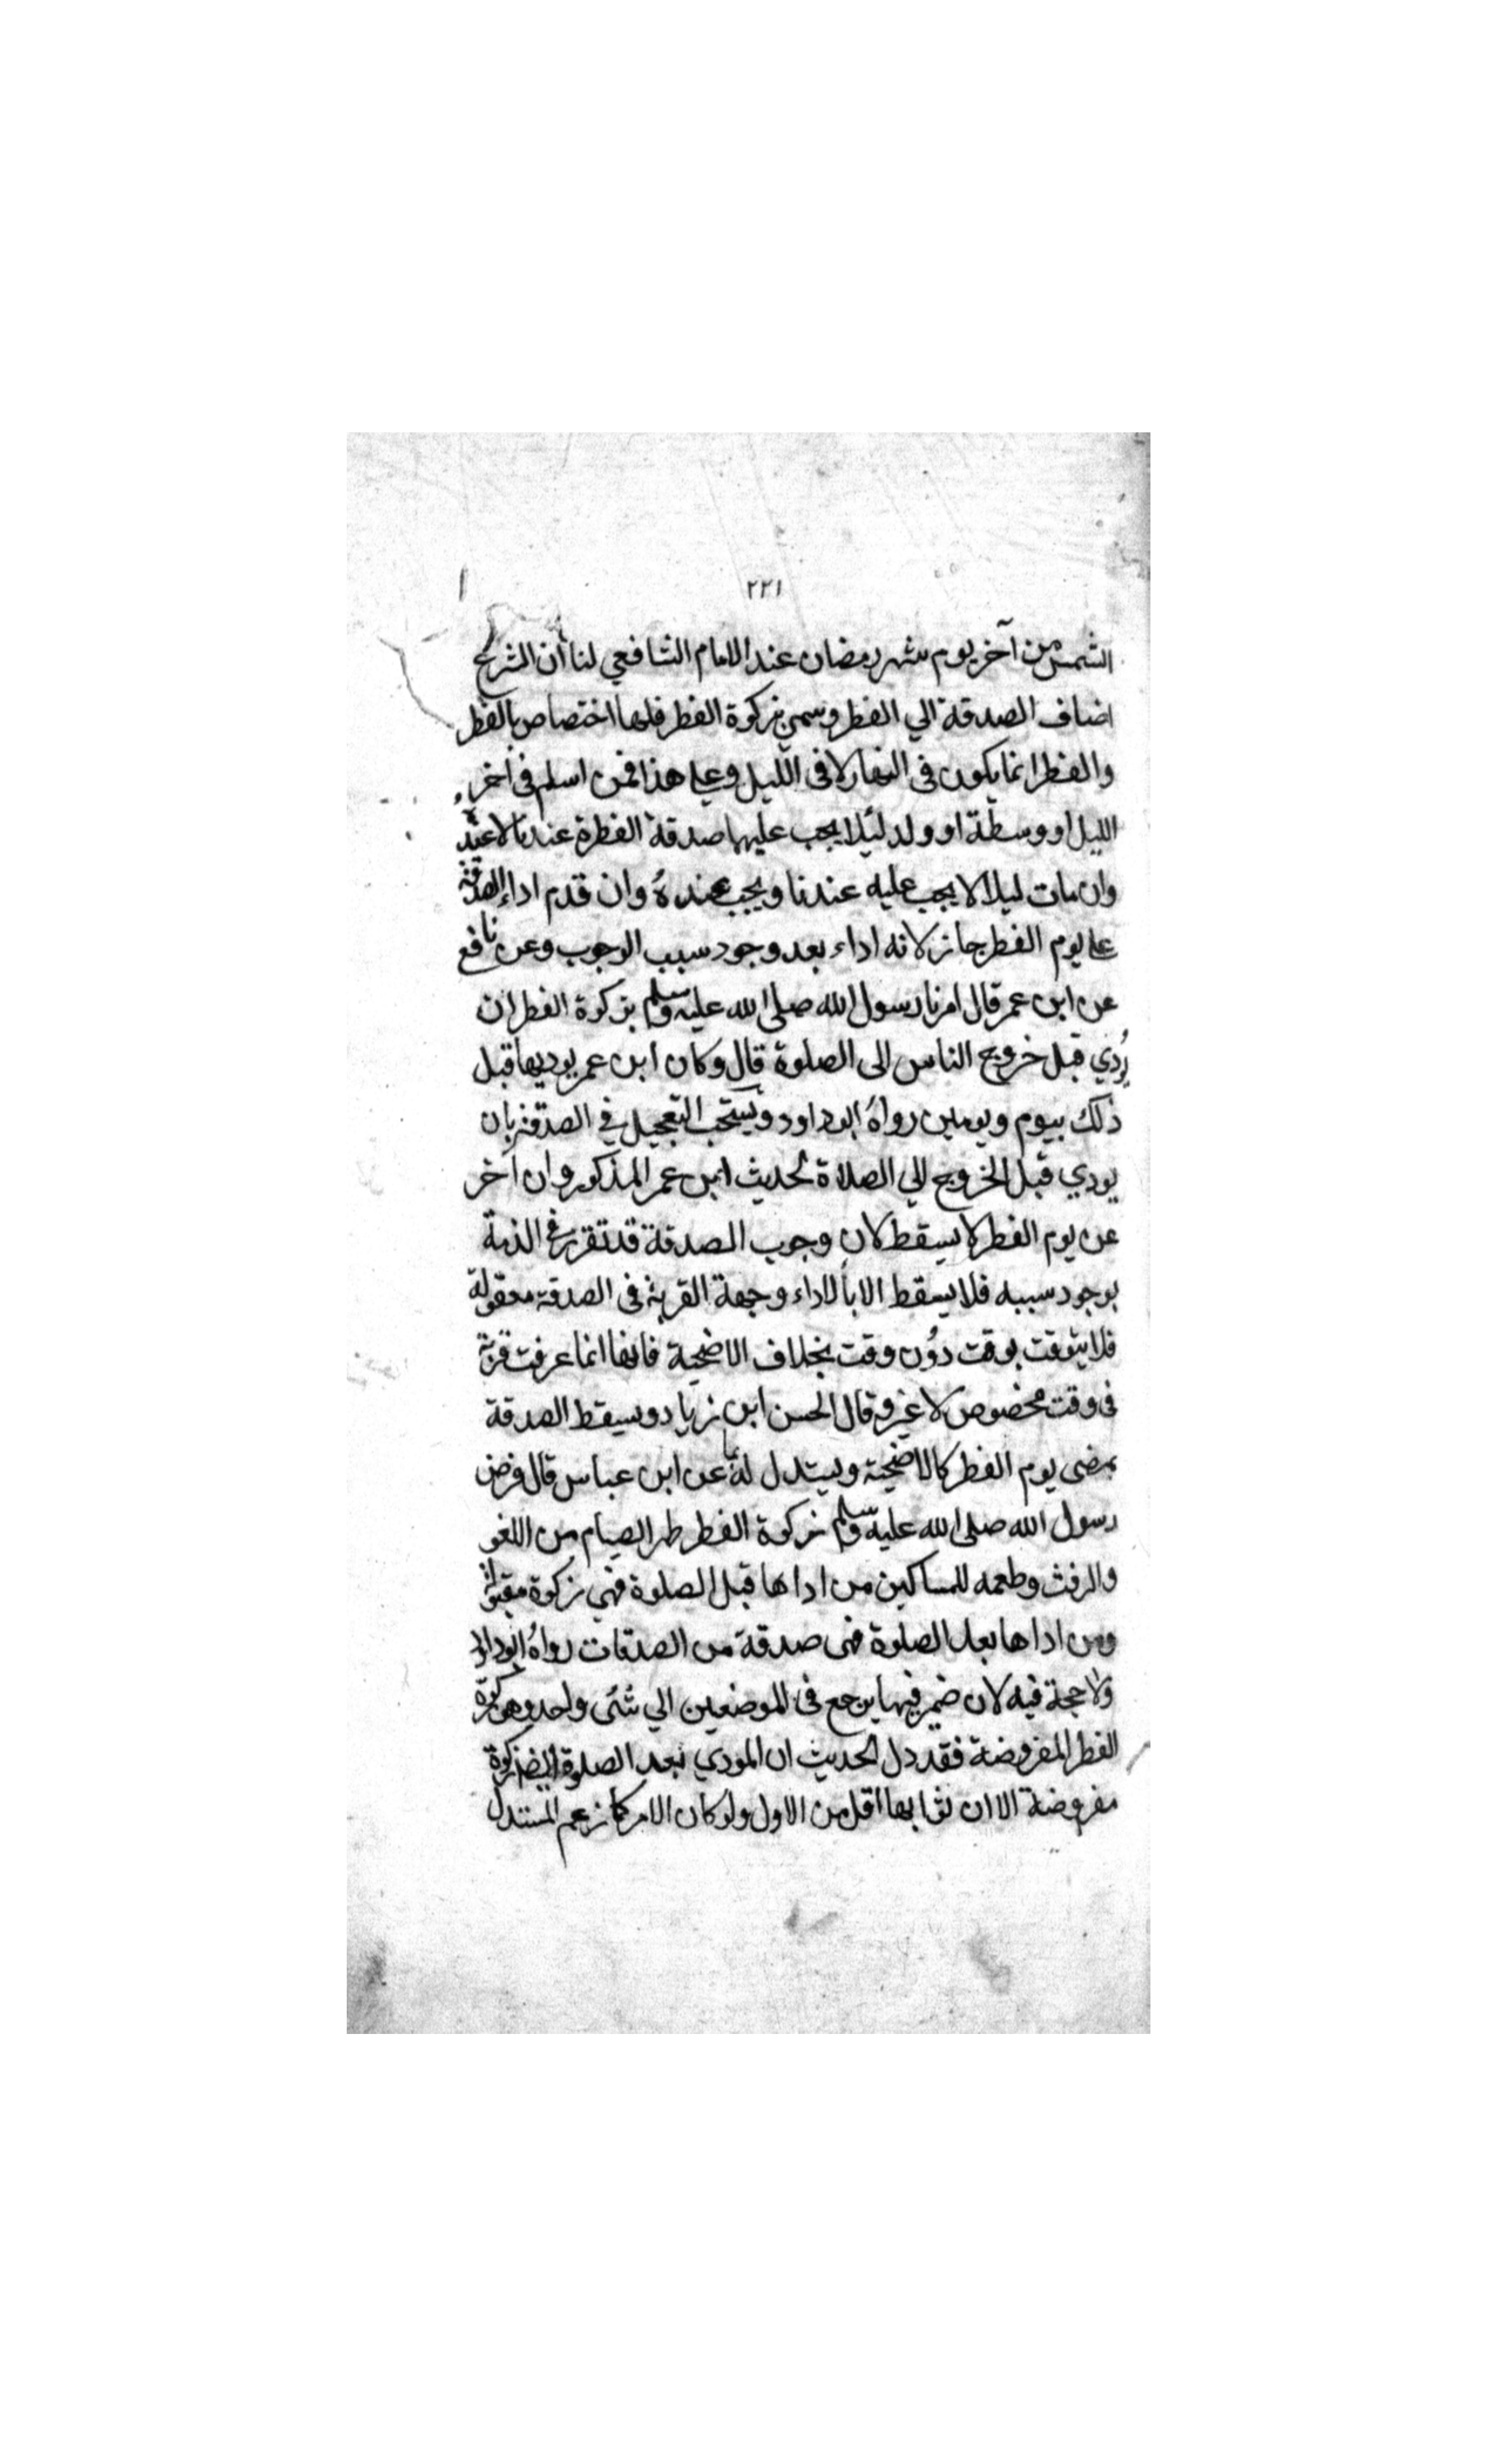 ٢٢١
الشمس من آخر يوم شهر رمضان عند الامام الشافعي لنا أن الشرع
اضاف الصدقة الي الفطر وسمي بزكوة الفطر فلها اختصاص بالفطر
والفطر انما يكون فى النهار لا فى الليل وعلى هذا فمن اسلم فى آخر
الليل او وسطة او ولد ليلا يجب عليهما صدقة الفطرة عندنا لا عنده
وان مات ليلا لا يجب عليه عندنا ويجب عنده وان قدم اداء الصدقة
على يوم الفطر جاز لانه اداء بعد وجود سبب الوجوب وعن نافع
عن ابن عمر قال امرنا رسول الله صلى الله عليه وسلم بزكوة الفطر ان
يُؤدي قبل خروج الناس الى الصلوة قال وكان ابن عمر يوديها قبل
ذلك بيوم ويومين رواهُ ابو داود ويستحب التعجيل في الصدقة بان
يودي قبل الخروج الي الصلاة لحديث ابن عمر المذكور وان اخر
عن يوم الفطر لا يسقط لان وجوب الصدقة قد تقرر في الذمة
بوجود سببه فلا يسقط الا بالاداء وجهة القربة فى الصدقة معقولة
فلا يتوقت بوقت دُون وقت بخلاف الاضحية فانها انما عرفت قربة
فى وقت مخصوص لا غير وقال الحسن ابن زياد ويسقط الصدقة
بمضى يوم الفطر كالاضحية ويستدل له بما عن ابن عباس قال فرض
رسول الله صلى الله عليه وسلم زكوة الفطر طهر الصيام من اللغو
والرفث وطعمه للمساكين من اداها قبل الصلوة فهي زكوة مقبولة
ومن اداها بعد الصلوة فهى صدقة من الصدقات رواهُ ابو داود
ولا حجة فيه لان ضمير فيهما يرجع فى الموضعين الي شئى واحد وهو زكوة
الفطر المفروضة فقد دل الحديث ان المودي بعد الصلوة ايضا زكوة
مفروضة الا ان ثوابها اقل من الاول ولو كان الامر كما زعم المستدل